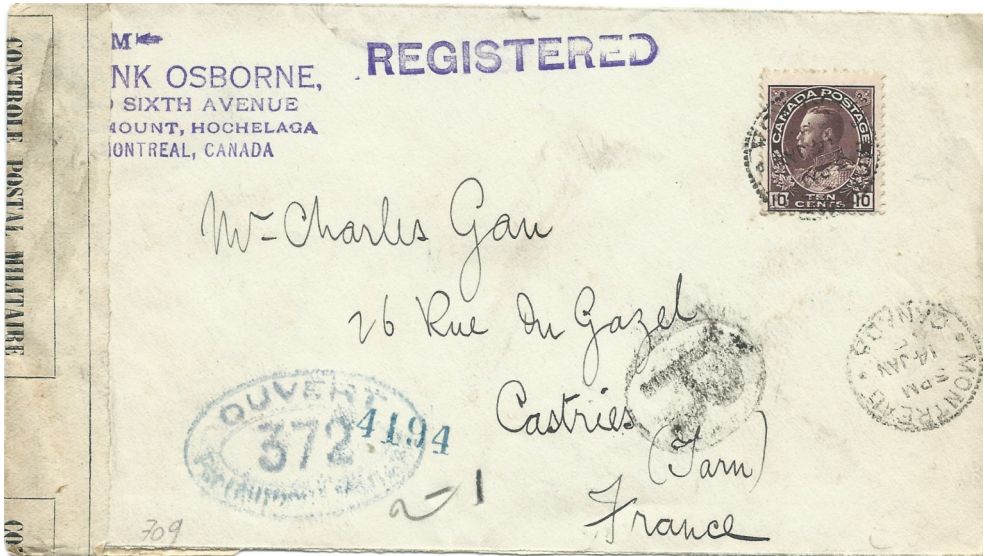 CONTROLE POSTAL MILITAIRE
CO
M
NK OSBORNE,
SIXTH AVENUE
MOUNT, HOCHELAGA
MONTREAL, CANADA
REGISTERED
CANADA POSTAGE
10 TEN CENTS 10
Mr Charles Gau
26 Rue du Gazel
Castries
(Tarn)
France
R
MONTREAL
5 PM
14 JAN
CANADA
OUVERT
372
4194
709